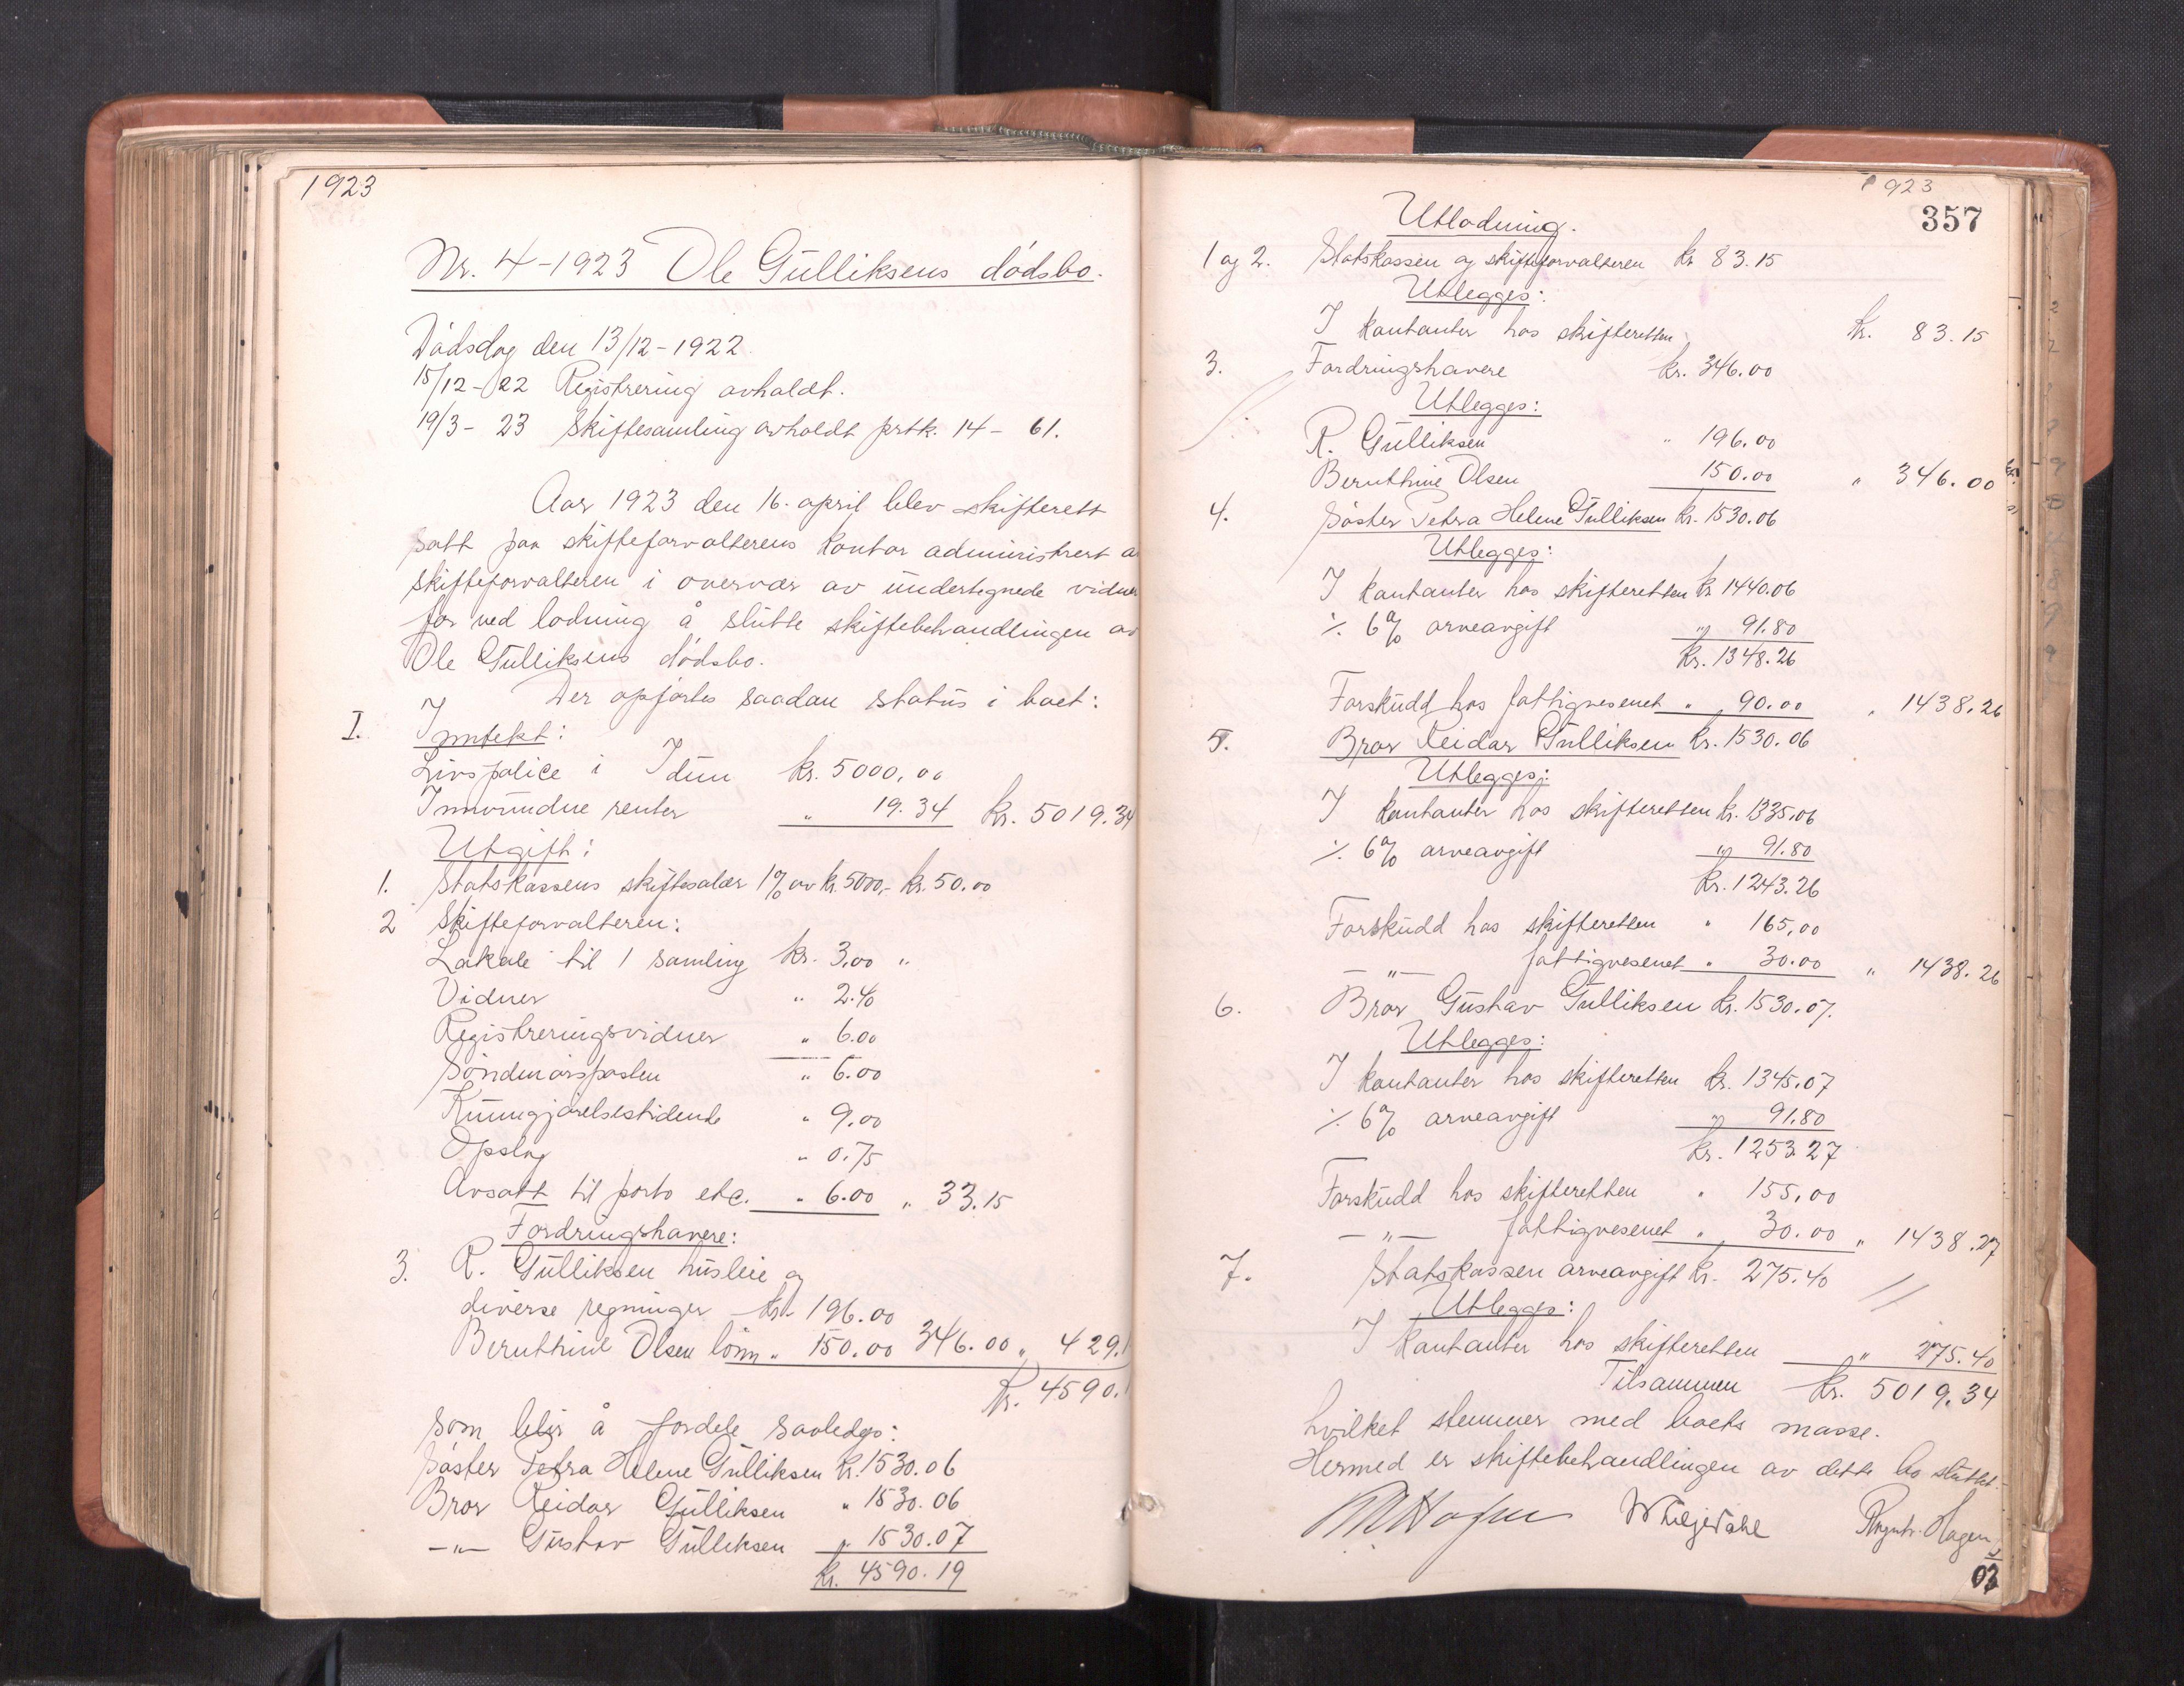 1923
Nr. 4-1923 Ole Gulliksens dödsbo.
Dödsdag den 13/12-1922.
15/12-22 Registrering avholdt.
19/3-23 Skiftesamling avholdt prtk. 14-61.
Aar 1923 den 16. april blev skifterett
satt paa skifteforvalterens kontor administrert a
skifteforvalteren i overvær av undertegnede vidner
for ved lodning å slutte skiftebehandlingen av
Ole Gulliksens dödsbo.
Der opførtes saadan status i boet:
I. Inntekt:
Livspolice i Idun kr. 5000,00
Innvundne renter " 19.34 kr. 5019.34
Utgift:
1. Statskassens skiftesalær 1% av kr. 5000,- kr. 50.00
2 Skifteforvalteren:
Lokale til 1 samling kr. 3,00 "
Vidner " 2.40
Registreringsvidner " 6.00
Söndmörsposten " 6.00
Kunngjørelsestidende " 9,00
Opslag " 0.75
Avsatt til porto etc. " 6.00 " 33.15
Fordringshavere:
3. R. Gulliksen husleie og
diverse regninger kr. 196.00
Bernthine Olsen lönn " 150.00 346.00 " 429.1
Kr. 4590.1
som blir å fordele saaledes:
Söster Petra Helene Gulliksen kr. 1530.06
Bror Reidar Gulliksen " 1530.06
-"- Gustav Gulliksen " 1530.07
Kr. 4590.19
1923
357
Utlodning.
1 og 2. Statskassen og skifteforvalteren kr 83.15
Utlegges:
I kontanter hos skifteretten kr. 83.15
3. Fordringshavere kr. 346.00
Utlegges:
R. Gulliksen " 196.00
Bernthine Olsen 150.00 " 346.00
4. Söster Petra Helene Gulliksen kr. 1530.06
Utlegges:
I kontanter hos skifteretten kr 1440.06
÷ 6% arveavgift " 91.80
Kr. 1348.26
Forskudd hos fattigvesenet " 90.00 " 1438.26
5. Bror Reidar Gulliksen kr. 1530.06
Utlegges:
I kontanter hos skifteretten kr. 1335,06
÷ 6% arveavgift " 91.80
Kr. 1243.26
Forskudd hos skifteretten " 165,00
-"- fattigvesenet " 30.00 " 1438.26
6. Bror Gustav Gulliksen kr. 1530.07.
Utlegges:
I kontanter hos skifteretten kr. 1345.07
÷ 6% arveavgift " 91.80
kr. 1253.27
Forskudd hos skifteretten " 155,00
-"- fattigvesenet " 30.00 " 1438.27
7. Statskassen arveavgift kr. 275.40
Utlegges:
I kontanter hos skifteretten " 275.40
Tilsammen kr. 5019.34
hvilket stemmer med boets masse.
Hermed er skiftebehandlingen av dette bo sluttet.
Hagen